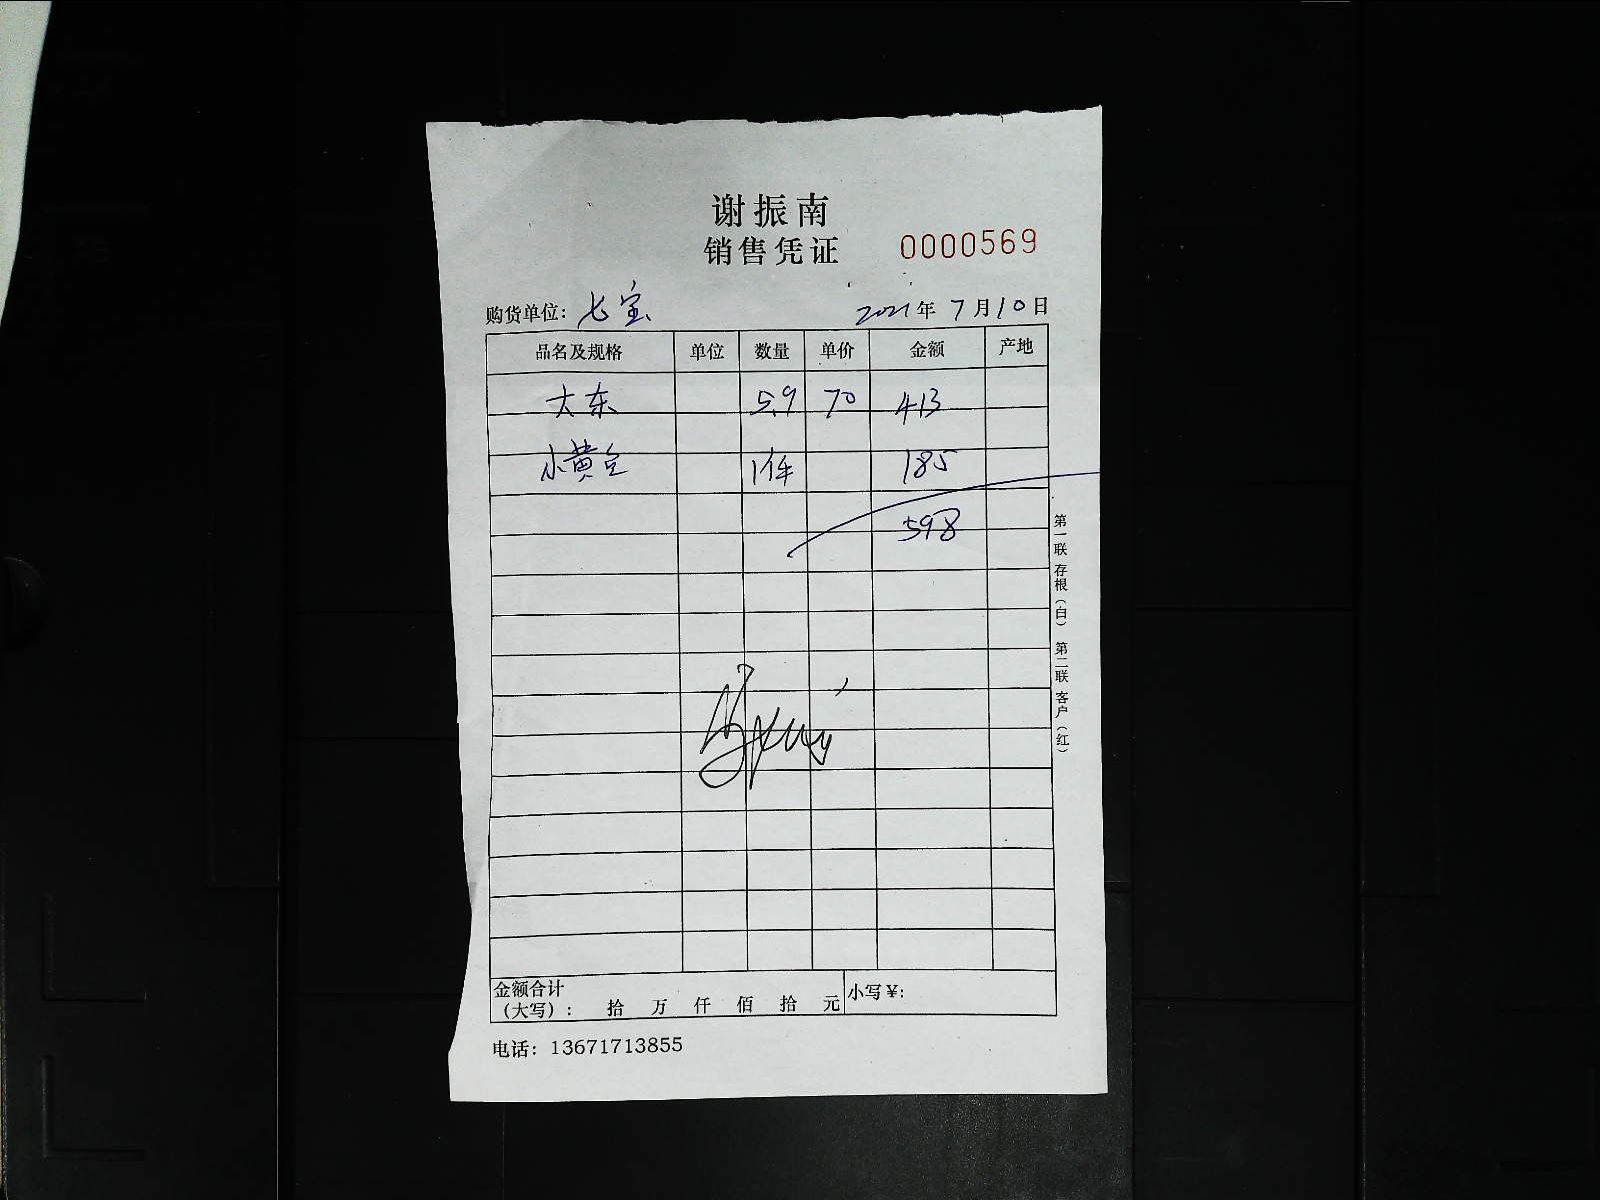 谢振南
销售凭证 0000569
购货单位：七宝 2021年7月10日
品名及规格 单位 数量 单价 金额 产地
大东 5.9 70 413
小黄鱼 1件 185
598
第一联 存根（白） 第二联 客户（红）
金额合计
（大写）： 拾 万 仟 佰 拾 元 小写¥：
电话：13671713855